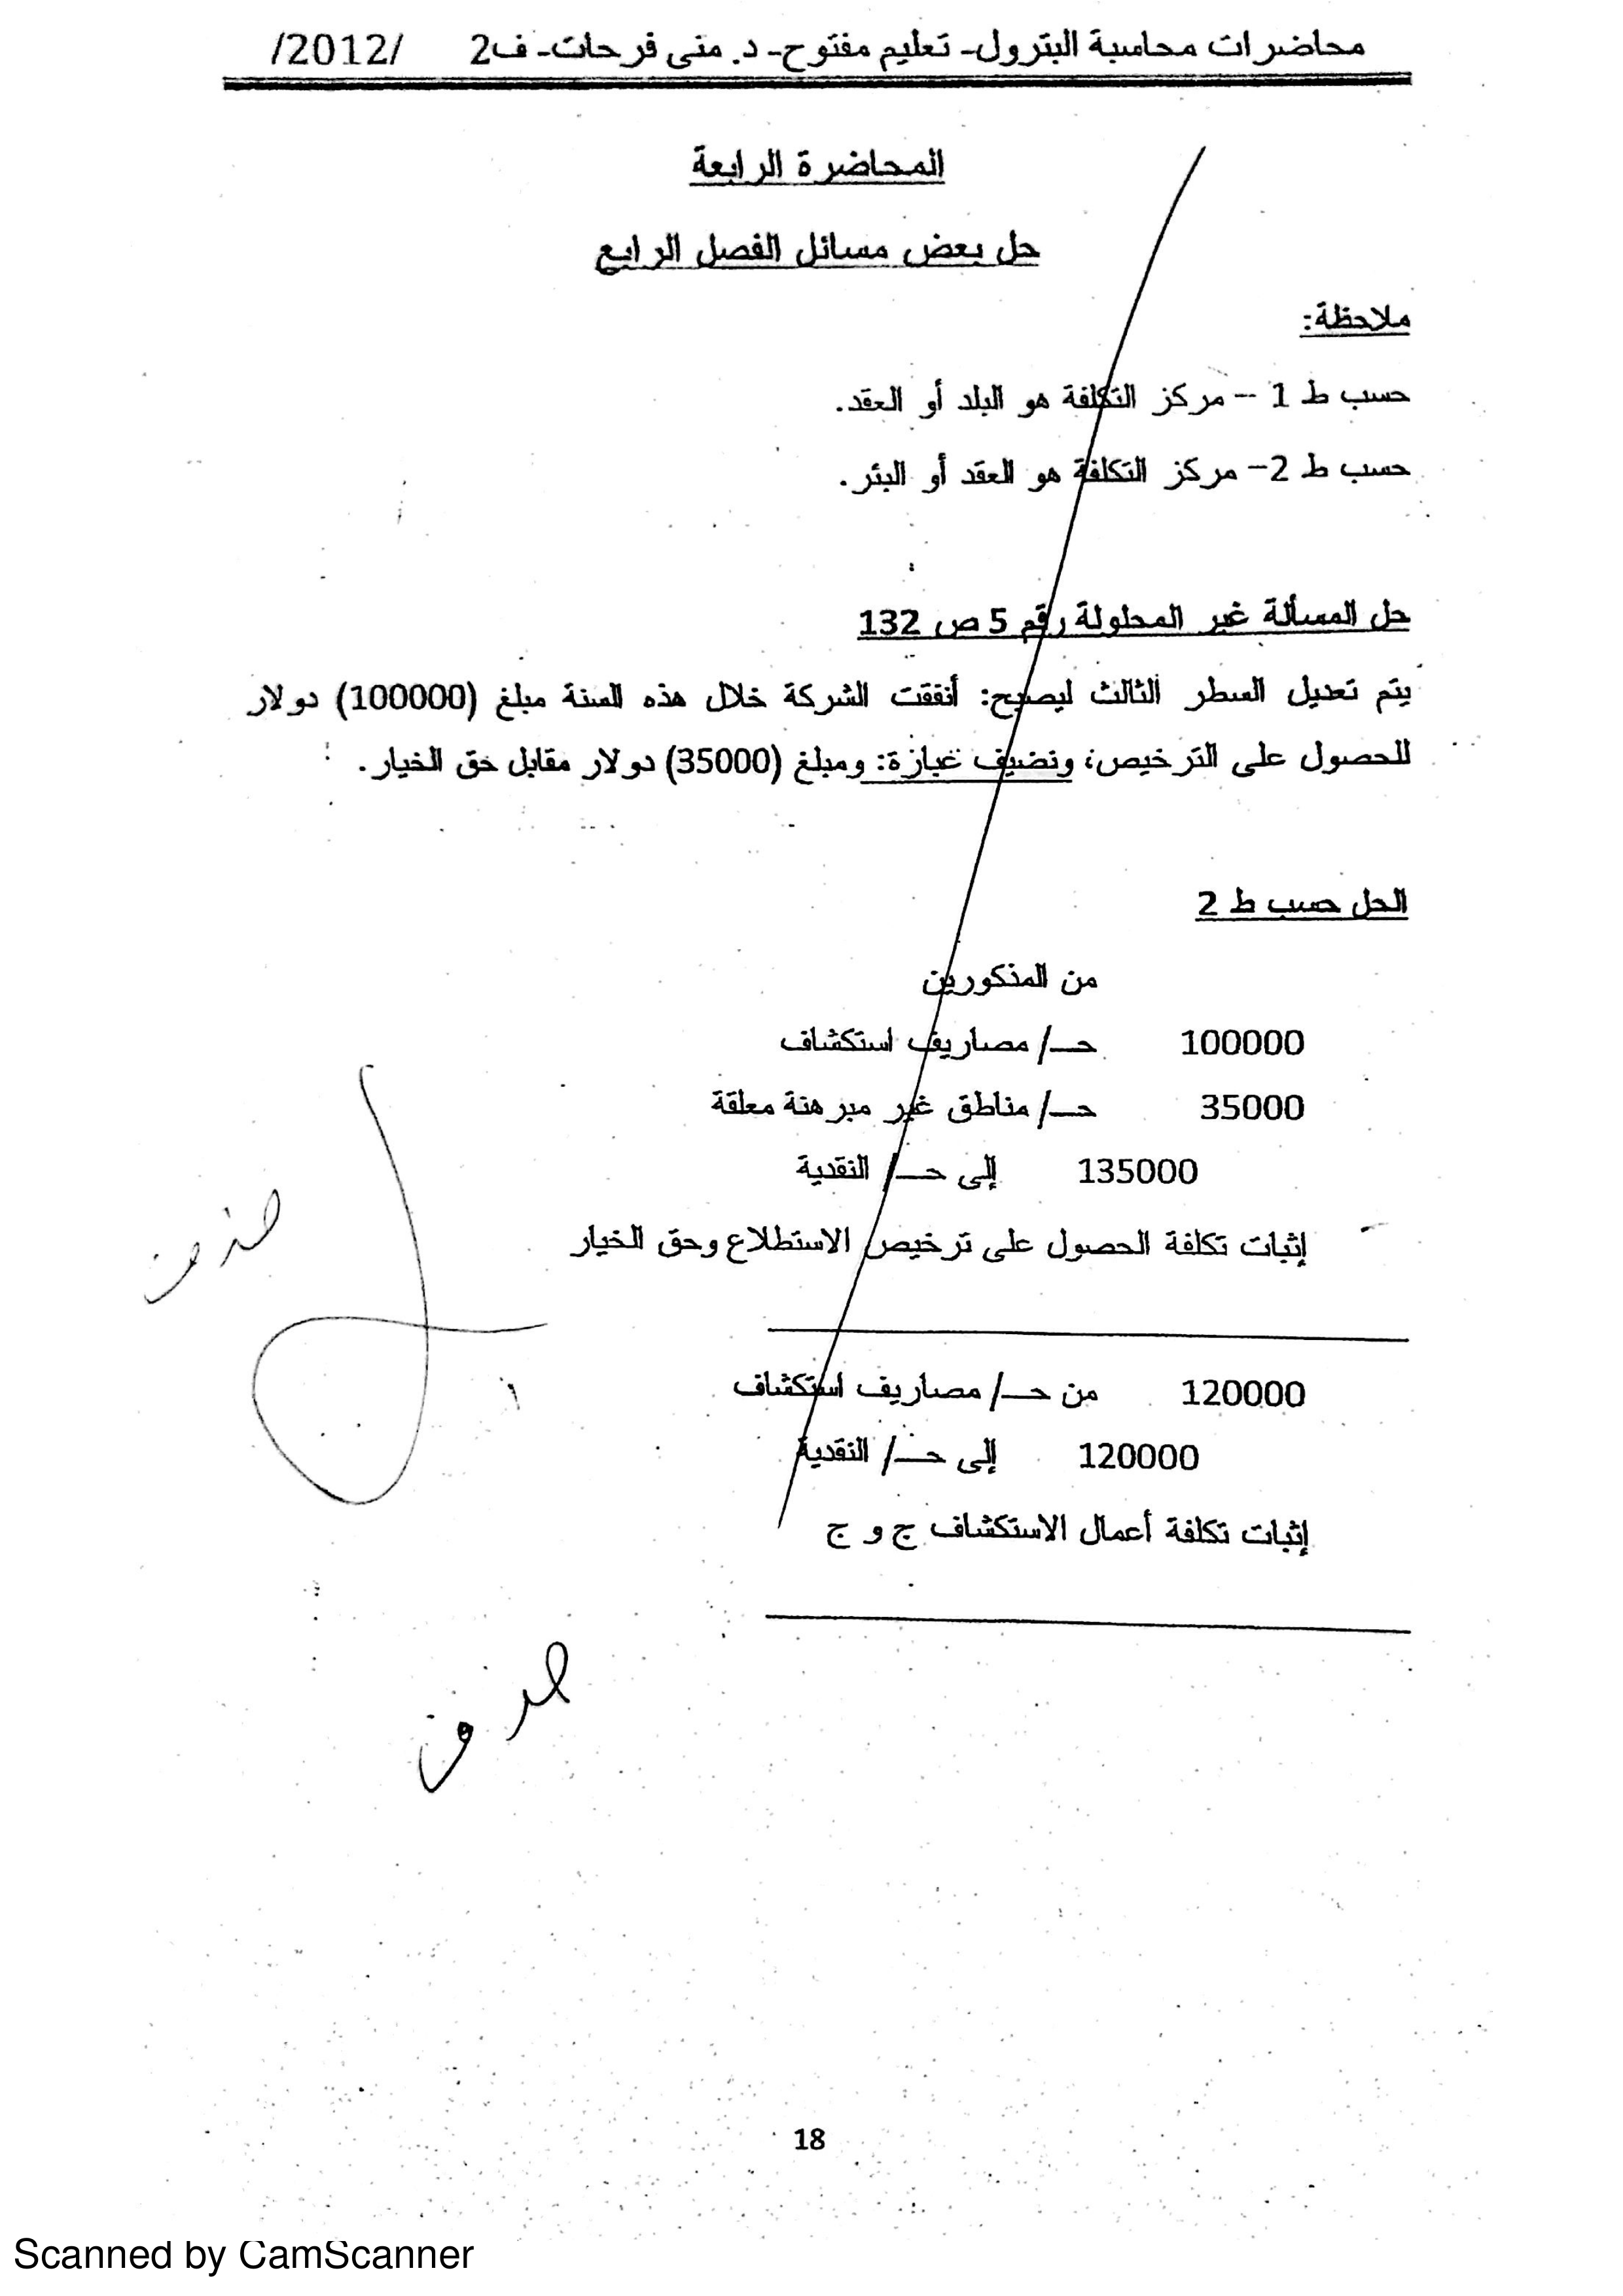 محاضرات محاسبة البترول- تعليم مفتوح- د. منى فرحات- ف2 /2012/
المحاضرة الرابعة
حل بعض مسائل الفصل الرابع
ملاحظة:
حسب ط 1 – مركز التكلفة هو البلد أو العقد.
حسب ط 2- مركز التكلفة هو العقد أو البئر.
حل المسألة غير المحلولة رقم 5 ص 132
يتم تعديل السطر الثالث ليصبح: أنفقت الشركة خلال هذه السنة مبلغ (100000) دولار
للحصول على الترخيص، ونضيف عبارة: ومبلغ (35000) دولار مقابل حق الخيار.
الحل حسب ط 2
من المذكورين
100000 حـ/ مصاريف استكشاف
35000 حـ/ مناطق غير مبرهنة معلقة
135000 إلى حـ/ النقدية
إثبات تكلفة الحصول على ترخيص الاستطلاع وحق الخيار
حذف
120000 من حـ/ مصاريف استكشاف
120000 إلى حـ/ النقدية
إثبات تكلفة أعمال الاستكشاف ج و ج
حذف
18
Scanned by CamScanner